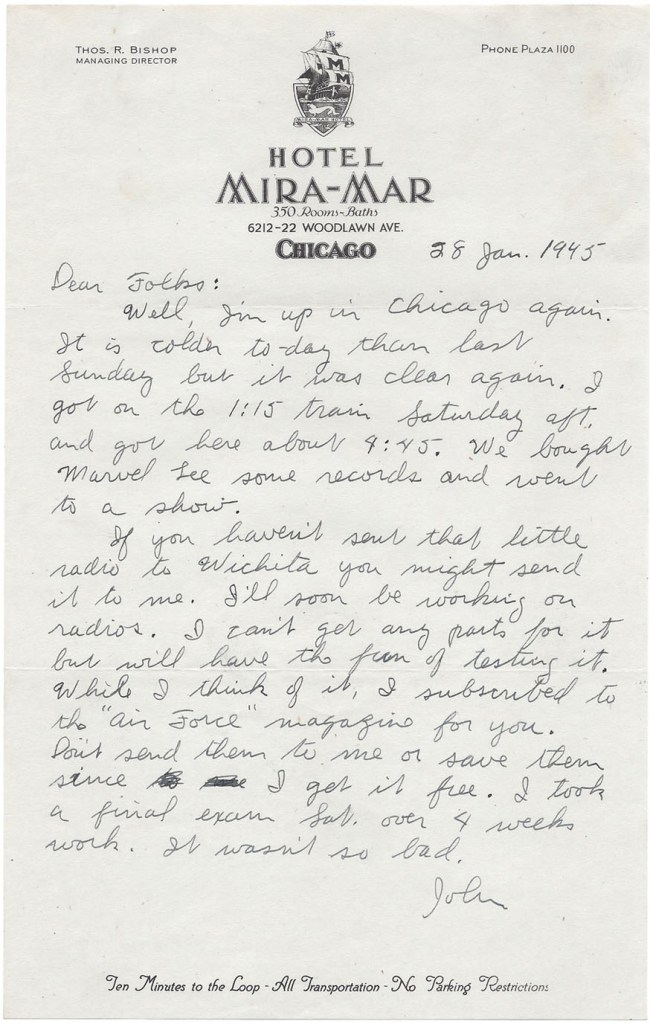 THOS. R. BISHOP
MANAGING DIRECTOR
PHONE PLAZA 1100
M M
MIRA-MAR HOTEL
HOTEL
MIRA-MAR
350 Rooms-Baths
6212-22 WOODLAWN AVE.
CHICAGO
28 Jan. 1945
Dear Folks:
Well, I'm up in Chicago again.
It is colder to-day than last
Sunday but it was clear again. I
got on the 1:15 train Saturday aft.
and got here about 4:45. We bought
Marvel Lee some records and went
to a show.
If you haven't sent that little
radio to Wichita you might send
it to me. I'll soon be working on
radios. I can't get any parts for it
but will have the fun of testing it.
While I think of it, I subscribed to
the "Air Force" magazine for you.
Don't send them to me or save them
since I get it free. I took
a final exam Sat. over 4 weeks
work. It wasn't so bad.
John
Ten Minutes to the Loop - All Transportation - No Parking Restrictions